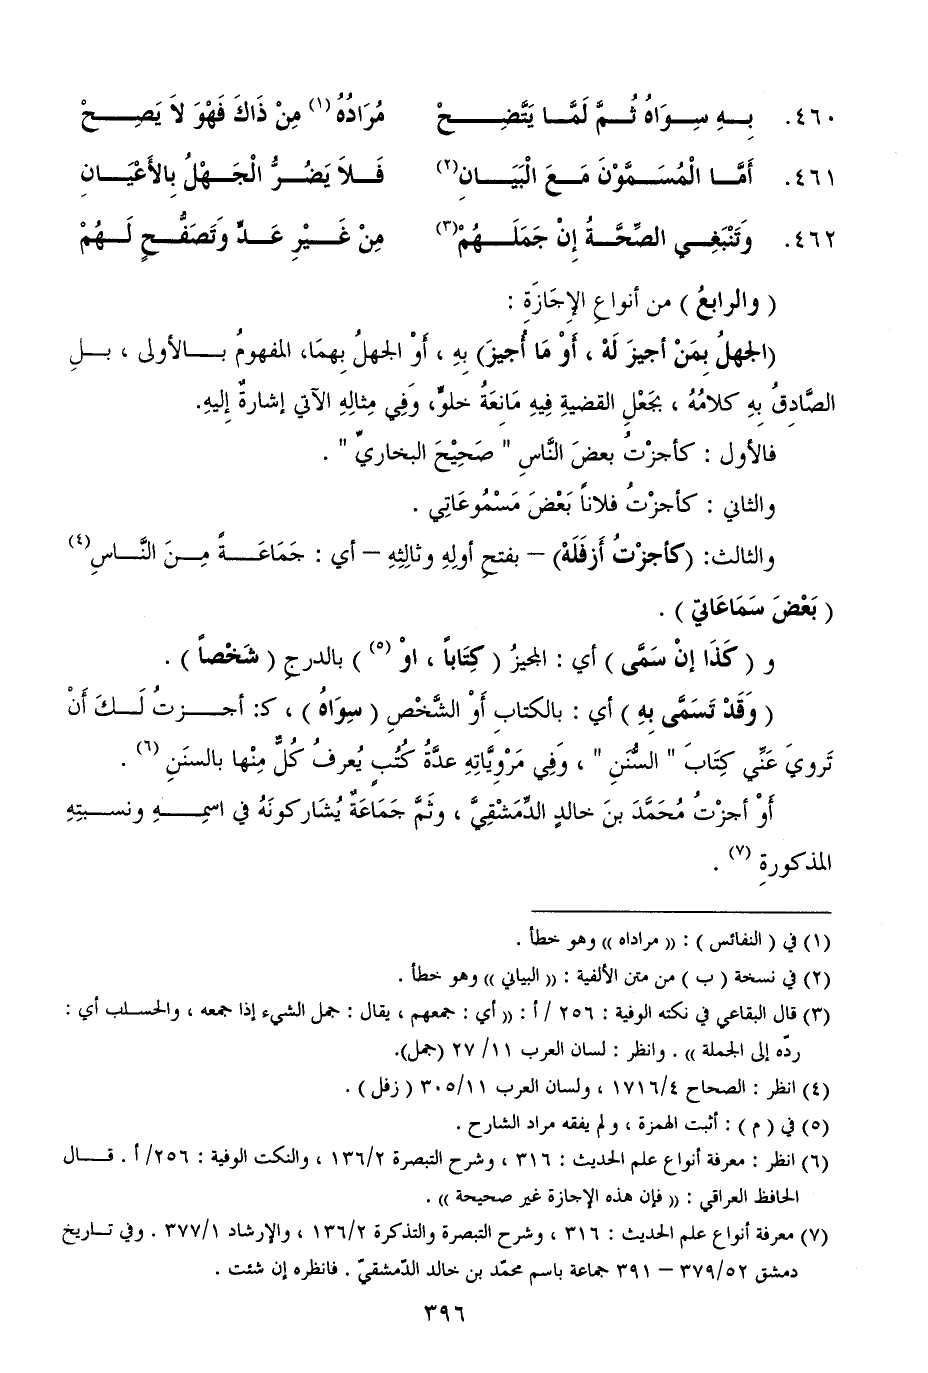 ٤٦٠. بِهِ سِوَاهُ ثُمَّ لَمَّا يَتَّضِحْ مُرَادُهُ (١) مِنْ ذَاكَ فَهْوَ لاَ يَصِحْ
٤٦١. أَمَّا الْمُسَمَّوْنَ مَعَ الْبَيَانِ (٢) فَلاَ يَضُرُّ الْجَهْلُ بِالأَعْيَانِ
٤٦٢. وَتَنْبَغِي الصِّحَّةُ إِنْ جَمَلَهُمْ (٣) مِنْ غَيْرِ عَدٍّ وَتَصَفُّحٍ لَهُمْ
( والرابعُ ) من أنواعِ الإِجَازَةِ :
(الجهلُ بِمَنْ أجيزَ لَهْ ، أَوْ مَا أُجِيزَ) بِهِ ، أَوْ الجهلُ بِهمَا، المفهومُ بالأولى ، بلِ
الصَّادِقُ بِهِ كلامُهُ ، بجَعْلِ القضيةِ فِيهِ مَانِعَةُ خلوٍّ، وَفِي مِثالِهِ الآتي إشارةٌ إليهِ.
فالأول : كأجزْتُ بعضَ النَّاسِ " صَحِيْحَ البخاريِّ " .
والثاني : كأجزْتُ فلاناً بَعْضَ مَسْمُوعَاتِي .
والثالث: (كأجزْتُ أَزفَلَهْ) – بفتحِ أولِهِ وثالِثِهِ – أي : جَمَاعَةً مِنَ النَّاسِ (٤)
( بَعْضَ سَمَاعَاتِيْ ) .
و ( كَذَا إنْ سَمَّى ) أي : المجيزُ ( كِتَاباً ، اوْ (٥) ) بالدرجِ ( شَخْصاً ) .
( وَقَدْ تَسَمَّى بِهِ ) أي : بالكتابِ أَوْ الشَّخْصِ ( سِوَاهُ ) ، كـ: أجزتُ لَكَ أَنْ
تَرويَ عَنِّي كِتَابَ " السُّنَنِ " ، وَفِي مَرْوِيَّاتِهِ عدَّةُ كُتُبٍ يُعرفُ كُلٌّ مِنْها بالسننِ (٦) .
أَوْ أجزْتُ مُحَمَّدَ بنَ خالدٍ الدِّمَشْقِيَّ ، وثَمَّ جَمَاعَةٌ يُشاركونَهُ في اسمِهِ ونسبتِهِ
المذكورةِ (٧) .
(١) في ( النفائس ) : (( مراداه )) وهو خطأ .
(٢) في نسخة ( ب ) من متن الألفية : (( البياني )) وهو خطأ .
(٣) قال البقاعي في نكته الوفية : ٢٥٦ / أ : (( أي : جمعهم ، يقال : جمل الشيء إذا جمعه ، والحساب أي :
ردّه إلى الجملة )) . وانظر : لسان العرب ١١/ ٢٧ (جمل).
(٤) انظر : الصحاح ١٧١٦/٤ ، ولسان العرب ٣٠٥/١١ ( زفل ) .
(٥) في ( م ) : أثبت الهمزة ، و لم يفقه مراد الشارح .
(٦) انظر : معرفة أنواع علم الحديث : ٣١٦ ، وشرح التبصرة ١٣٦/٢ ، والنكت الوفية : ٢٥٦/ أ . قال
الحافظ العراقي : (( فإن هذه الإجازة غير صحيحة )) .
(٧) معرفة أنواع علم الحديث : ٣١٦ ، وشرح التبصرة والتذكرة ١٣٦/٢ ، والإرشاد ٣٧٧/١ . وفي تاريخ
دمشق ٣٧٩/٥٢ – ٣٩١ جماعة باسم محمّد بن خالد الدّمشقيّ . فانظره إن شئت .
٣٩٦